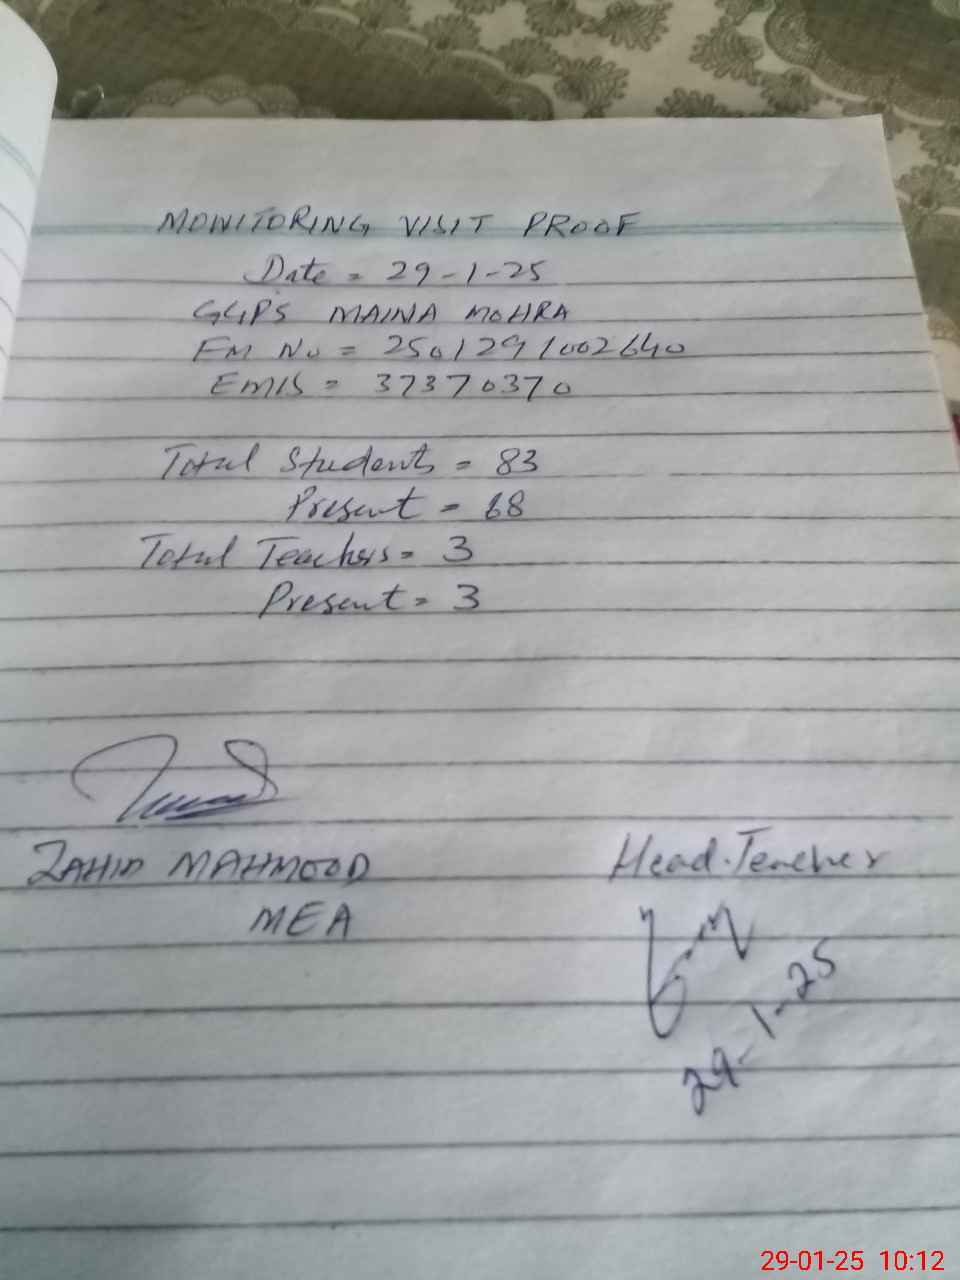 MONITORING VISIT PROOF
Date = 29-1-25
GGPS MAINA MOHRA
FM No = 2501291002640
EMIS = 37370370
Total Students = 83
Present = 68
Total Teachers = 3
Present = 3
ZAHID MAHMOOD
MEA
Head-Teacher
29-1-25
29-01-25 10:12